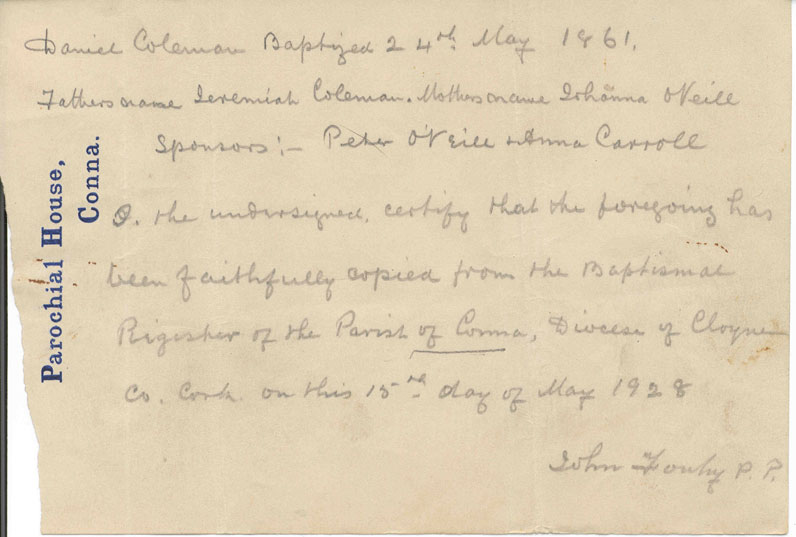 Parochial House,
Conna.
Daniel Coleman Baptized 24th May 1861.
Fathers name Jeremiah Coleman. Mothers name Johanna O'Neill
Sponsors:- Peter O'Neill & Anna Carroll
I. the undersigned, certify that the foregoing has
been faithfully copied from the Baptismal
Register of the Parish of Conna, Diocese of Cloyne
Co. Cork on this 15th day of May 1928
John P.P.